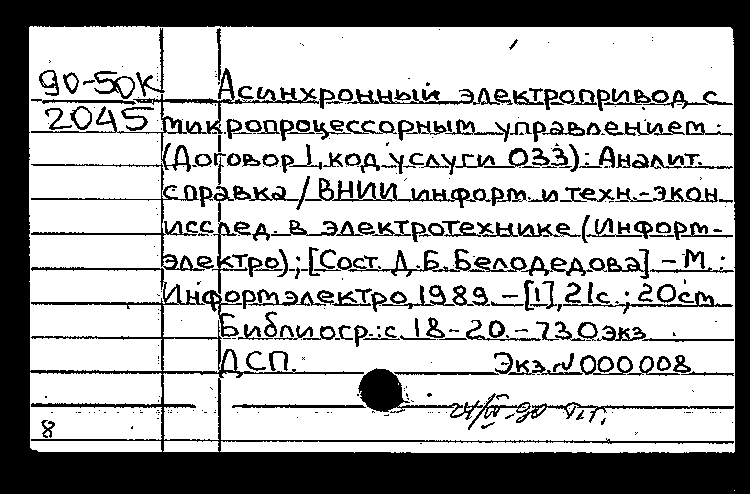 90-50К
2045
Асинхронный электропривод с
микропроцессорным управлением :
(Договор 1, код услуги 033) : Аналит.
справка / ВНИИ информ. и техн.-экон.
исслед. в электротехнике (Информ-
электро) ; [Сост. Д.Б. Белодедова] - М. :
Информэлектро, 1989. - [1], 21 с. ; 20 см
Библиогр.: с. 18-20. - 730 экз.
ДСП. Экз. № 000008
8